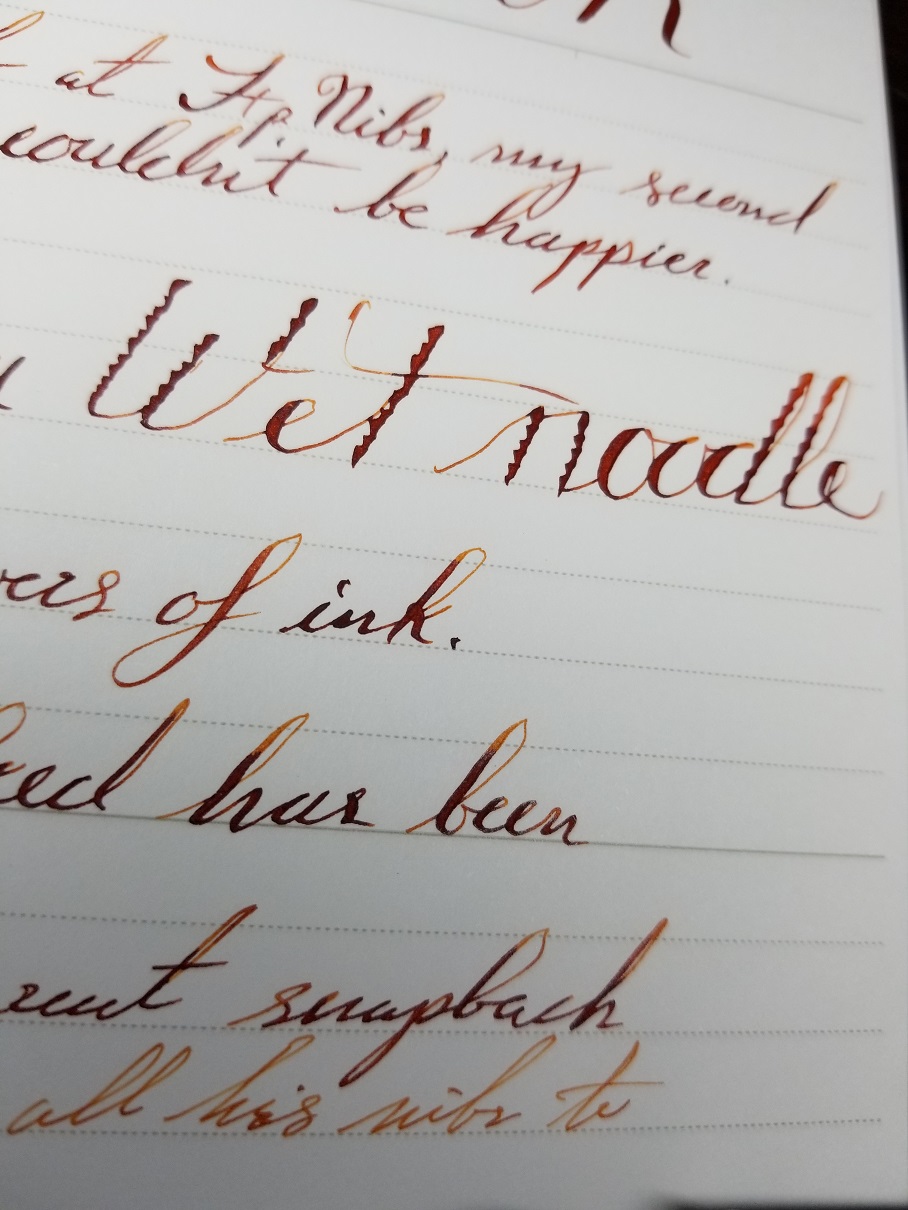 at F.p. Nibs, my second
couldn't be happier.
Wet noodle
of ink.
has been
snapback
all his nibs to